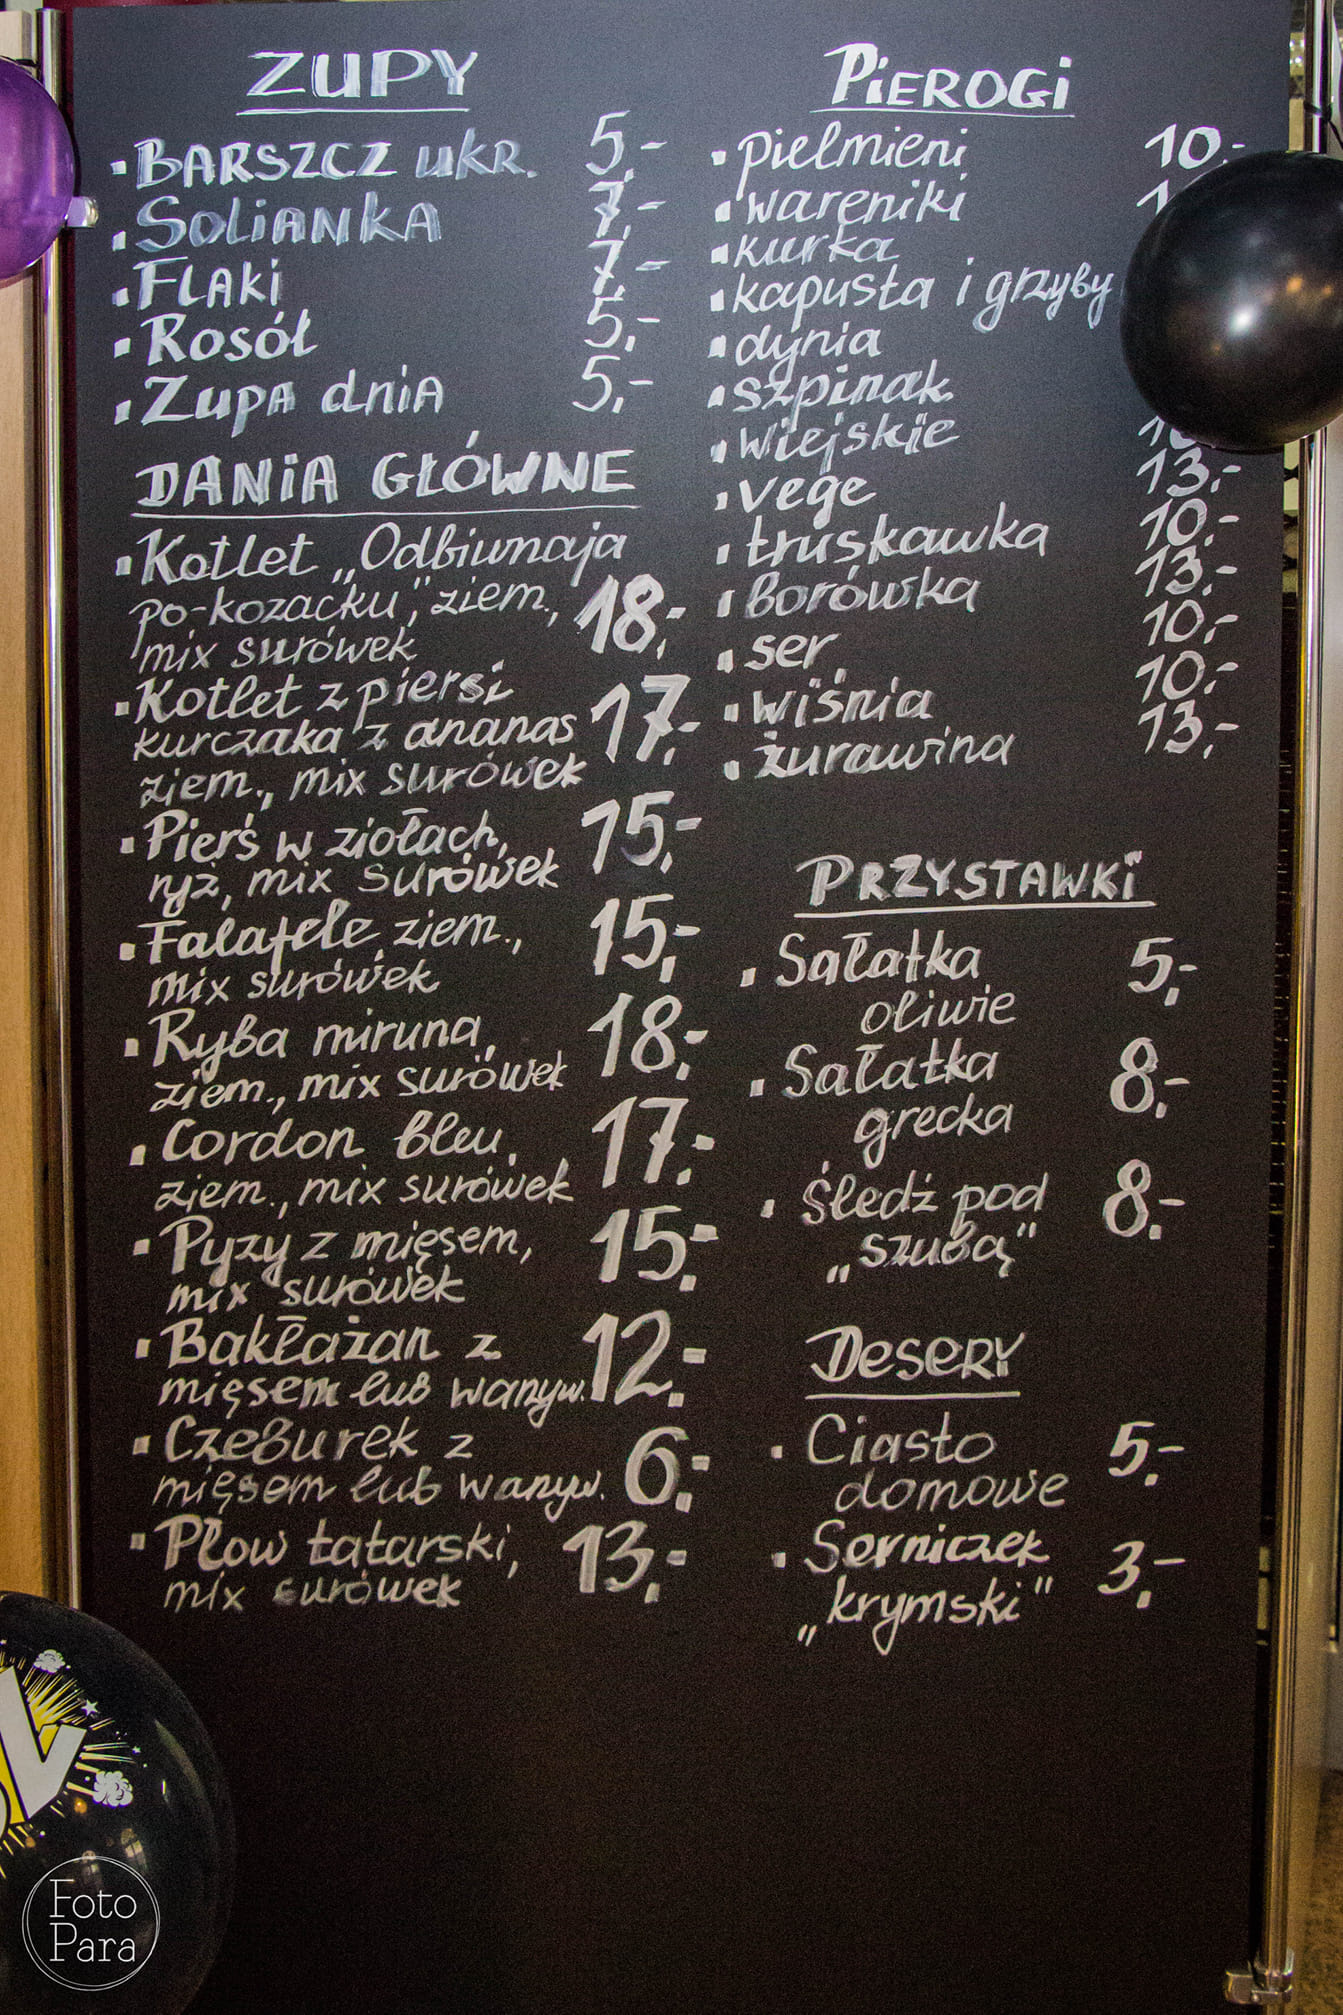 ZUPY
BARSZCZ UKR. 5,-
SOLIANKA 7,-
FLAKI 7,-
ROSÓŁ 5,-
ZUPA dNIA 5,-
DANIA GŁÓWNE
Kotlet „Odbiwnaja
po-kozacku", ziem., 18,-
mix surówek
Kotlet z piersi
kurczaka z ananas 17,-
ziem., mix surówek
Pierś w ziołach, 15,-
ryż, mix surówek
Falafele, ziem., 15,-
mix surówek
Ryba miruna, 18,-
ziem., mix surówek
Cordon bleu, 17,-
ziem., mix surówek
Pyzy z mięsem, 15,-
mix surówek
Bakłażan z 12,-
mięsem lub warzyw.
Czeburek z 6,-
mięsem lub warzyw.
Płow tatarski, 13,-
mix surówek
PIEROGI
pielmieni 10,-
wareniki
kurka
kapusta i grzyby
dynia
szpinak
wiejskie
vege 13,-
truskawka 10,-
borówka 13,-
ser 10,-
wiśnia 10,-
żurawina 13,-
PRZYSTAWKI
Sałatka 5,-
oliwie
Sałatka 8,-
grecka
Śledź pod 8,-
„szubą"
DESERY
Ciasto 5,-
domowe
Serniczek 3,-
„krymski"
Foto
Para